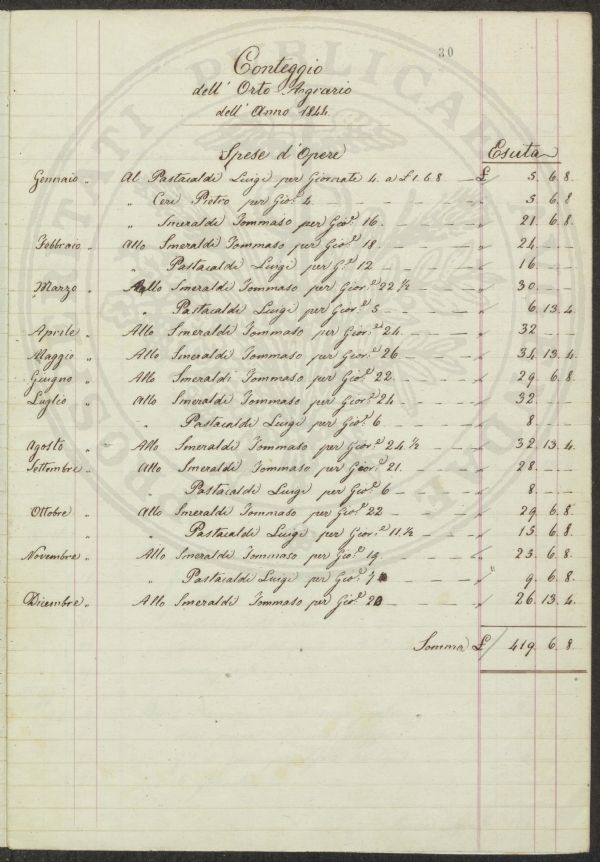 30
Conteggio
dell' Orto Agrario
dell' Anno 1844.
Spese d'Opere Esuta
Gennaio " Al Pastacaldi Luigi per Giornate 4. a £ 1.6.8 £ 5. 6. 8.
" Ceri Pietro per Gio.e 4 " 5. 6. 8
" Smeraldi Tommaso per Gio.e 16. " 21. 6. 8.
Febbraio " Allo Smeraldi Tommaso per Gio.e 18. " 24
" Pastacaldi Luigi per G.e 12 " 16
Marzo " Allo Smeraldi Tommaso per Gior.e 22 ½ " 30
" Pastacaldi Luigi per Gior.e 5 " 6. 13. 4
Aprile " Allo Smeraldi Tommaso per Gior.e 24. " 32
Maggio " Allo Smeraldi Tommaso per Gior.e 26 " 34. 13. 4.
Giugno " Allo Smeraldi Tommaso per Gio.e 22. " 29. 6. 8.
Luglio " Allo Smeraldi Tommaso per Gior.e 24 " 32
" Pastacaldi Luigi per Gio.e 6 " 8
Agosto " Allo Smeraldi Tommaso per Gior.e 24 ½ " 32. 13. 4
Settembre " Allo Smeraldi Tommaso per Gior.e 21. " 28
" Pastacaldi Luigi per Gio.e 6 " 8
Ottobre " Allo Smeraldi Tommaso per Gio.e 22 " 29. 6. 8.
" Pastacaldi Luigi per Gior.e 11. ½ " 15. 6. 8.
Novembre " Allo Smeraldi Tommaso per Gio.e 19 " 25. 6. 8.
" Pastacaldi Luigi per Gio.e 7 " 9. 6. 8.
Dicembre " Allo Smeraldi Tommaso per Gio.e 20 " 26. 13. 4.
Somma £ 419. 6. 8.